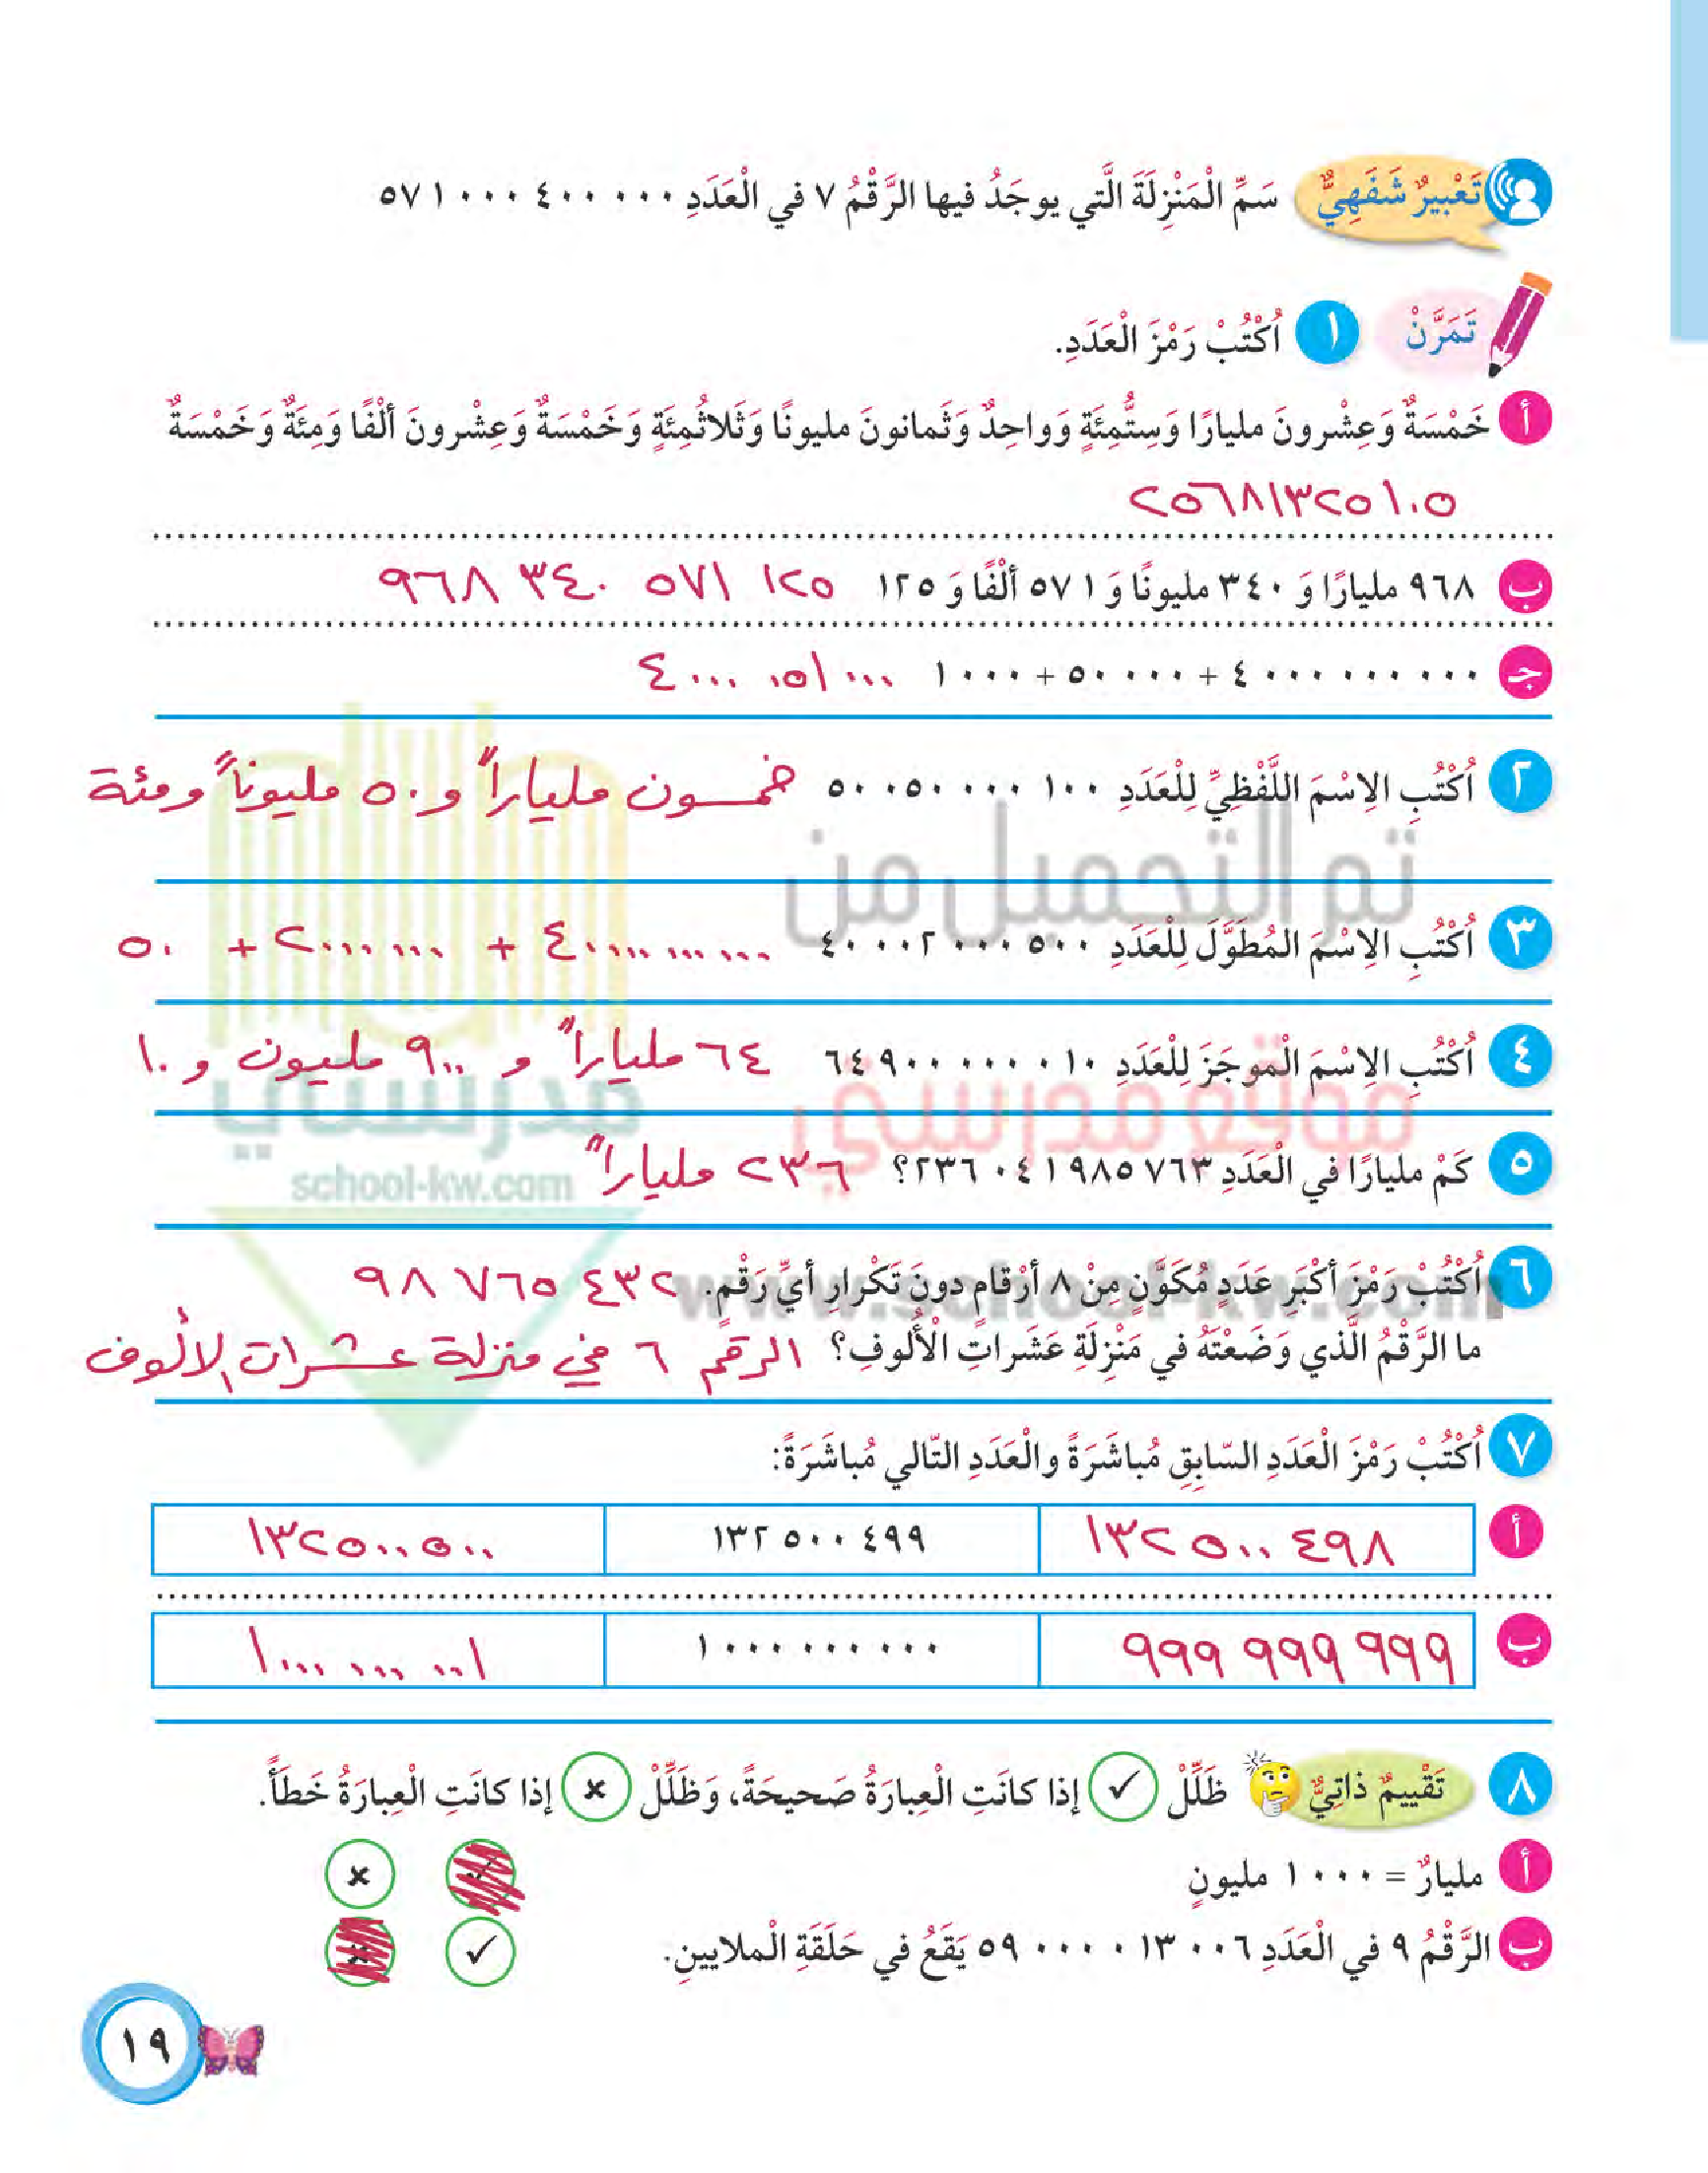 تَعْبيرٌ شَفَهِيٌّ سَمِّ الْمَنْزِلَةَ الَّتي يوجَدُ فيها الرَّقْمُ ٧ في الْعَدَدِ ٥٧١ ٠٠٠ ٤٠٠ ٠٠٠
تَمَرَّنْ ١ اُكْتُبْ رَمْزَ الْعَدَدِ.
أ خَمْسَةٌ وَعِشْرونَ مليارًا وَسِتُّمِئَةٍ وَواحِدٌ وَثَمانونَ مليونًا وَثَلاثُمِئَةٍ وَخَمْسَةٌ وَعِشْرونَ أَلْفًا وَمِئَةٌ وَخَمْسَةٌ
٢٥٦٨١٣٢٥١٠٥
ب ٩٦٨ مليارًا وَ ٣٤٠ مليونًا وَ ٥٧١ أَلْفًا وَ ١٢٥ ٩٦٨ ٣٤٠ ٥٧١ ١٢٥
جـ ٤ ٠٠٠ ٠٠٠ ٠٠٠ + ٥٠ ٠٠٠ + ١ ٠٠٠ ٤٠٠٠ ٠٥١ ٠٠٠
٢ اُكْتُبِ الِاسْمَ اللَّفْظِيَّ لِلْعَدَدِ ٥٠ ٠٥٠ ٠٠٠ ١٠٠ خمسون ملياراً و ٥٠ مليوناً ومئة
تم التحميل من
٣ اُكْتُبِ الِاسْمَ المُطَوَّلَ لِلْعَدَدِ ٤٠ ٠٠٢ ٠٠٠ ٥٠٠ ٤٠٠٠٠ ٠٠٠ ٠٠٠ + ٢٠٠٠ ٠٠٠ + ٥٠
٤ اُكْتُبِ الِاسْمَ الْموجَزَ لِلْعَدَدِ ٦٤ ٩٠٠ ٠٠٠ ٠١٠ ٦٤ ملياراً و ٩٠٠ مليون و ١٠
موقع مدرستي مدرستي
school-kw.com
٥ كَمْ مليارًا في الْعَدَدِ ٢٣٦ ٠٤١ ٩٨٥ ٧٦٣؟ ٢٣٦ ملياراً
www.school-kw.com
٦ اُكْتُبْ رَمْزَ أَكْبَرِ عَدَدٍ مُكَوَّنٍ مِنْ ٨ أَرْقامٍ دونَ تَكْرارِ أَيِّ رَقْمٍ. ٩٨ ٧٦٥ ٤٣٢
ما الرَّقْمُ الَّذي وَضَعْتَهُ في مَنْزِلَةِ عَشَراتِ الْأُلوفِ؟ الرقم ٦ في منزلة عشرات الألوف
٧ اُكْتُبْ رَمْزَ الْعَدَدِ السّابِقِ مُباشَرَةً والْعَدَدِ التّالي مُباشَرَةً:
أ ١٣٢ ٥٠٠ ٤٩٨ ١٣٢ ٥٠٠ ٤٩٩ ١٣٢٥٠٠٥٠٠
ب ٩٩٩ ٩٩٩ ٩٩٩ ١ ٠٠٠ ٠٠٠ ٠٠٠ ١٠٠٠ ٠٠٠ ٠٠١
٨ تَقْييمٌ ذاتِيٌّ ظَلِّلْ ✓ إِذا كانَتِ الْعِبارَةُ صَحيحَةً، وَظَلِّلْ × إِذا كانَتِ الْعِبارَةُ خَطَأً.
أ مليارٌ = ١ ٠٠٠ مليونٍ ✓ ×
ب الرَّقْمُ ٩ في الْعَدَدِ ٥٩ ٠٠٠ ٠١٣ ٠٠٦ يَقَعُ في حَلَقَةِ الْملايينِ. ✓ ×
١٩